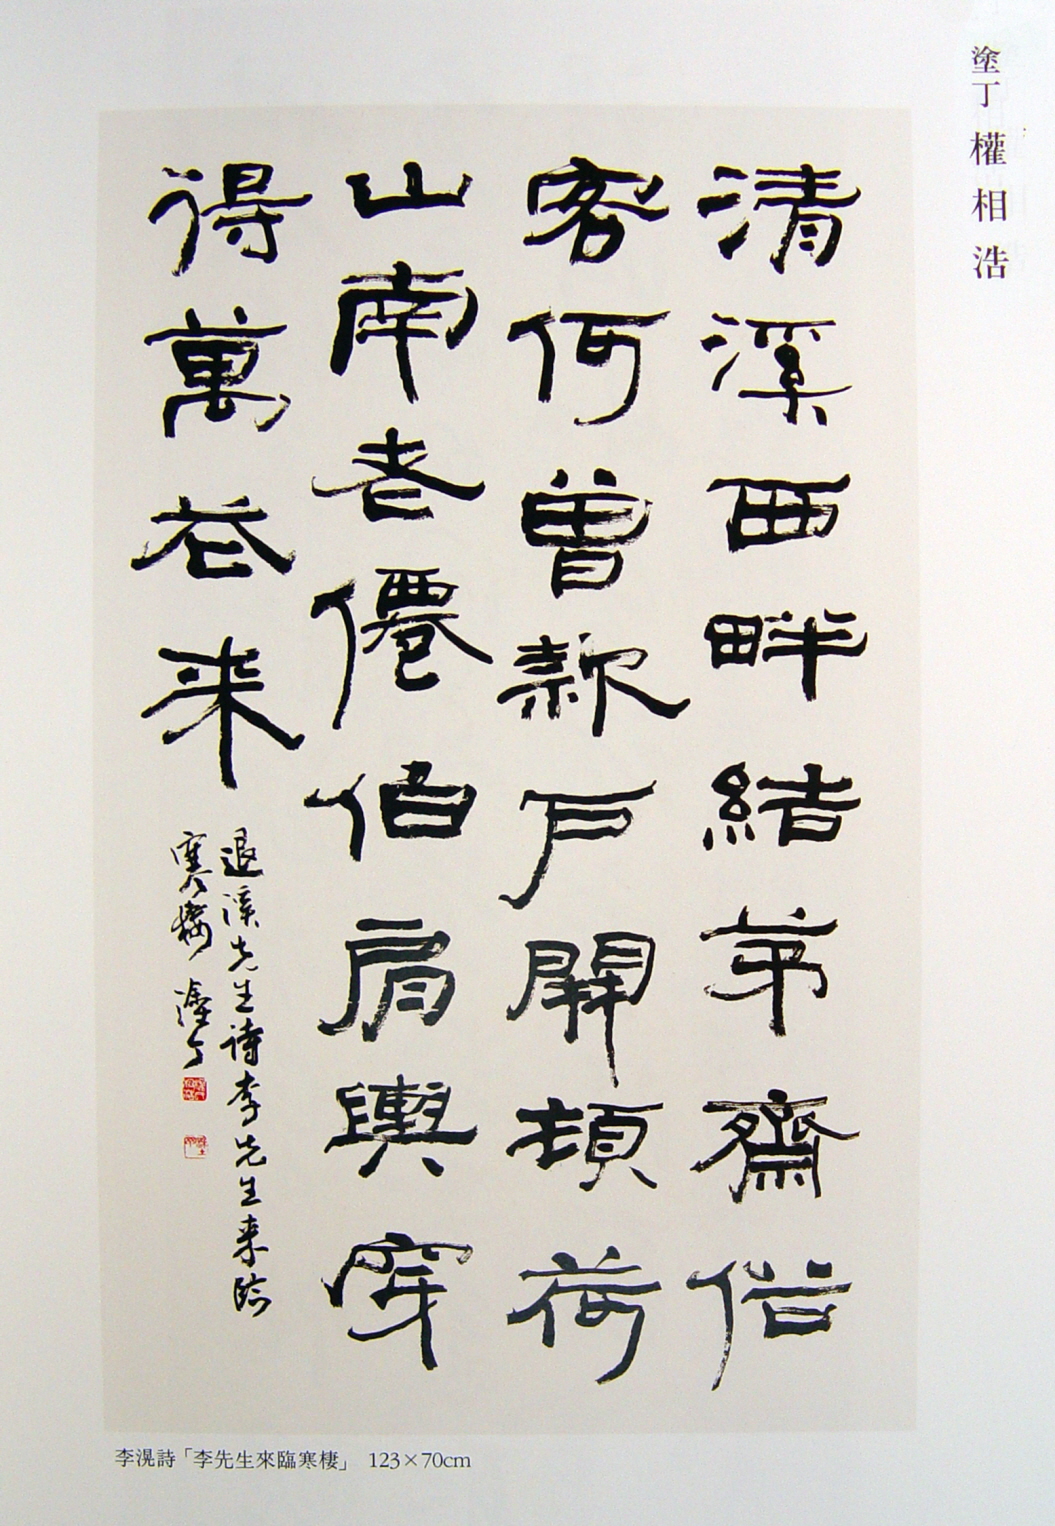 塗丁 權相浩
清溪西畔結茅齋俗
客何曾款戶開頓荷
山南老僊伯肩輿穿
得萬花来
退溪先生诗李先生来臨
寒棲 塗丁
李滉詩「李先生來臨寒棲」 123×70cm